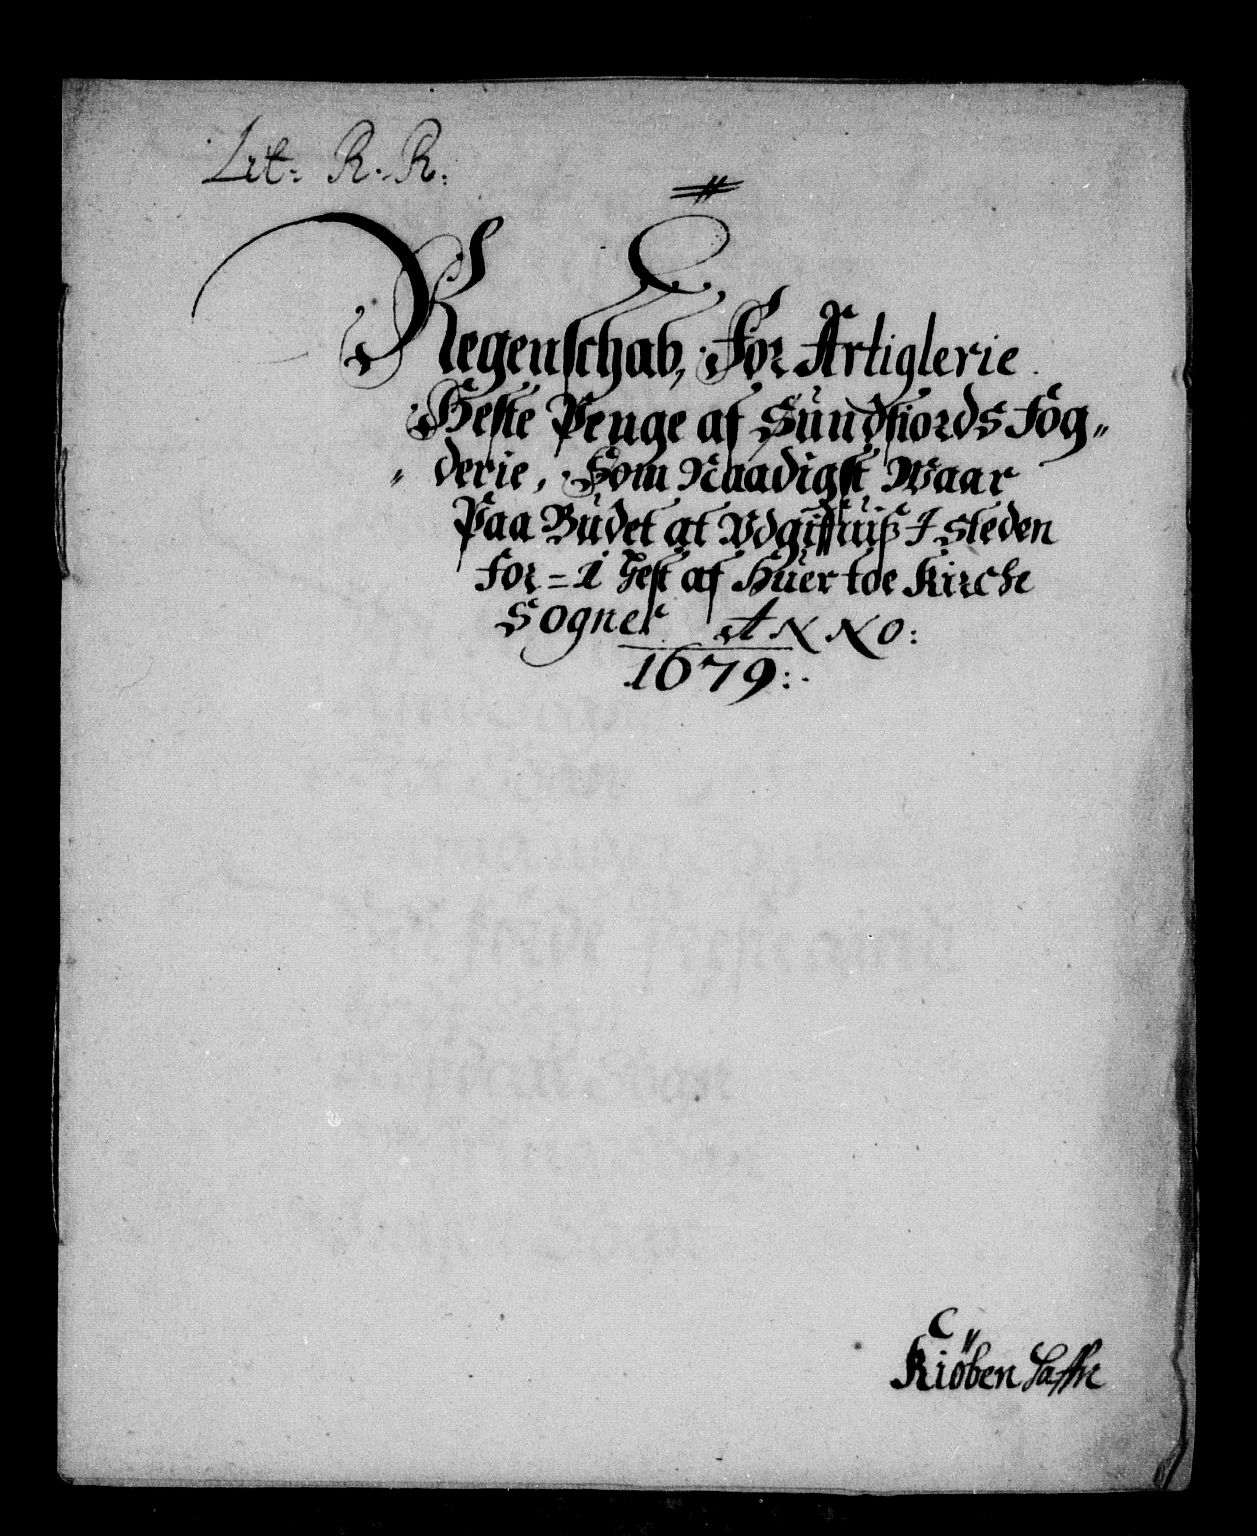 Lit: R. R:
Regenschab, For Artiglerie
Heste Penge af Sundfiords Fög-
derie, Som Naadigst Waar
Paa Budet at Udgiffuis I steden
for = 1 Hest af Huer toe Kirche
Sogner ANNO:
1679:
C
Kiöben